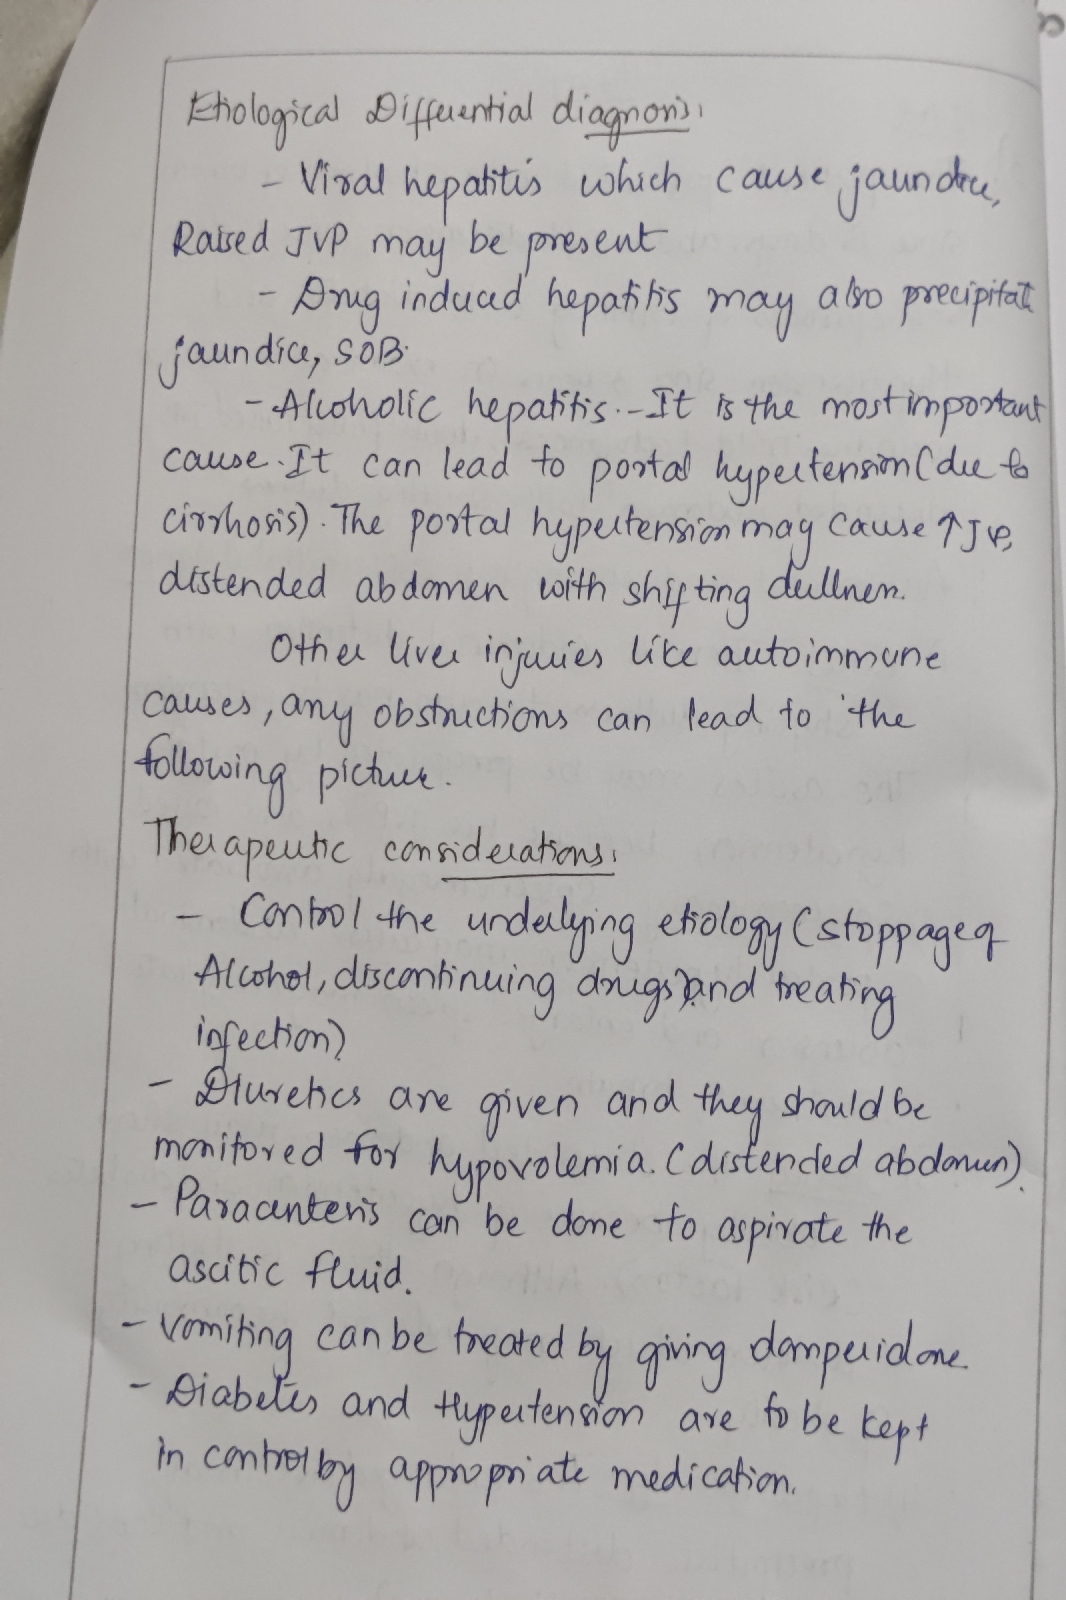 Etiological Differential diagnosis:
- Viral hepatitis which cause jaundice,
Raised JVP may be present
- Drug induced hepatitis may also precipitate
jaundice, SOB.
- Alcoholic hepatitis. - It is the most important
cause. It can lead to portal hypertension (due to
cirrhosis). The portal hypertension may cause ↑JVP,
distended abdomen with shifting dullness.
Other liver injuries like autoimmune
causes, any obstructions can lead to the
following picture.
Therapeutic considerations:
- Control the underlying etiology (stoppage of
Alcohol, discontinuing drugs) and treating
infection)
- Diuretics are given and they should be
monitored for hypovolemia. (distended abdomen).
- Paracentesis can be done to aspirate the
ascitic fluid.
- Vomiting can be treated by giving domperidone.
- Diabetes and Hypertension are to be kept
in control by appropriate medication.